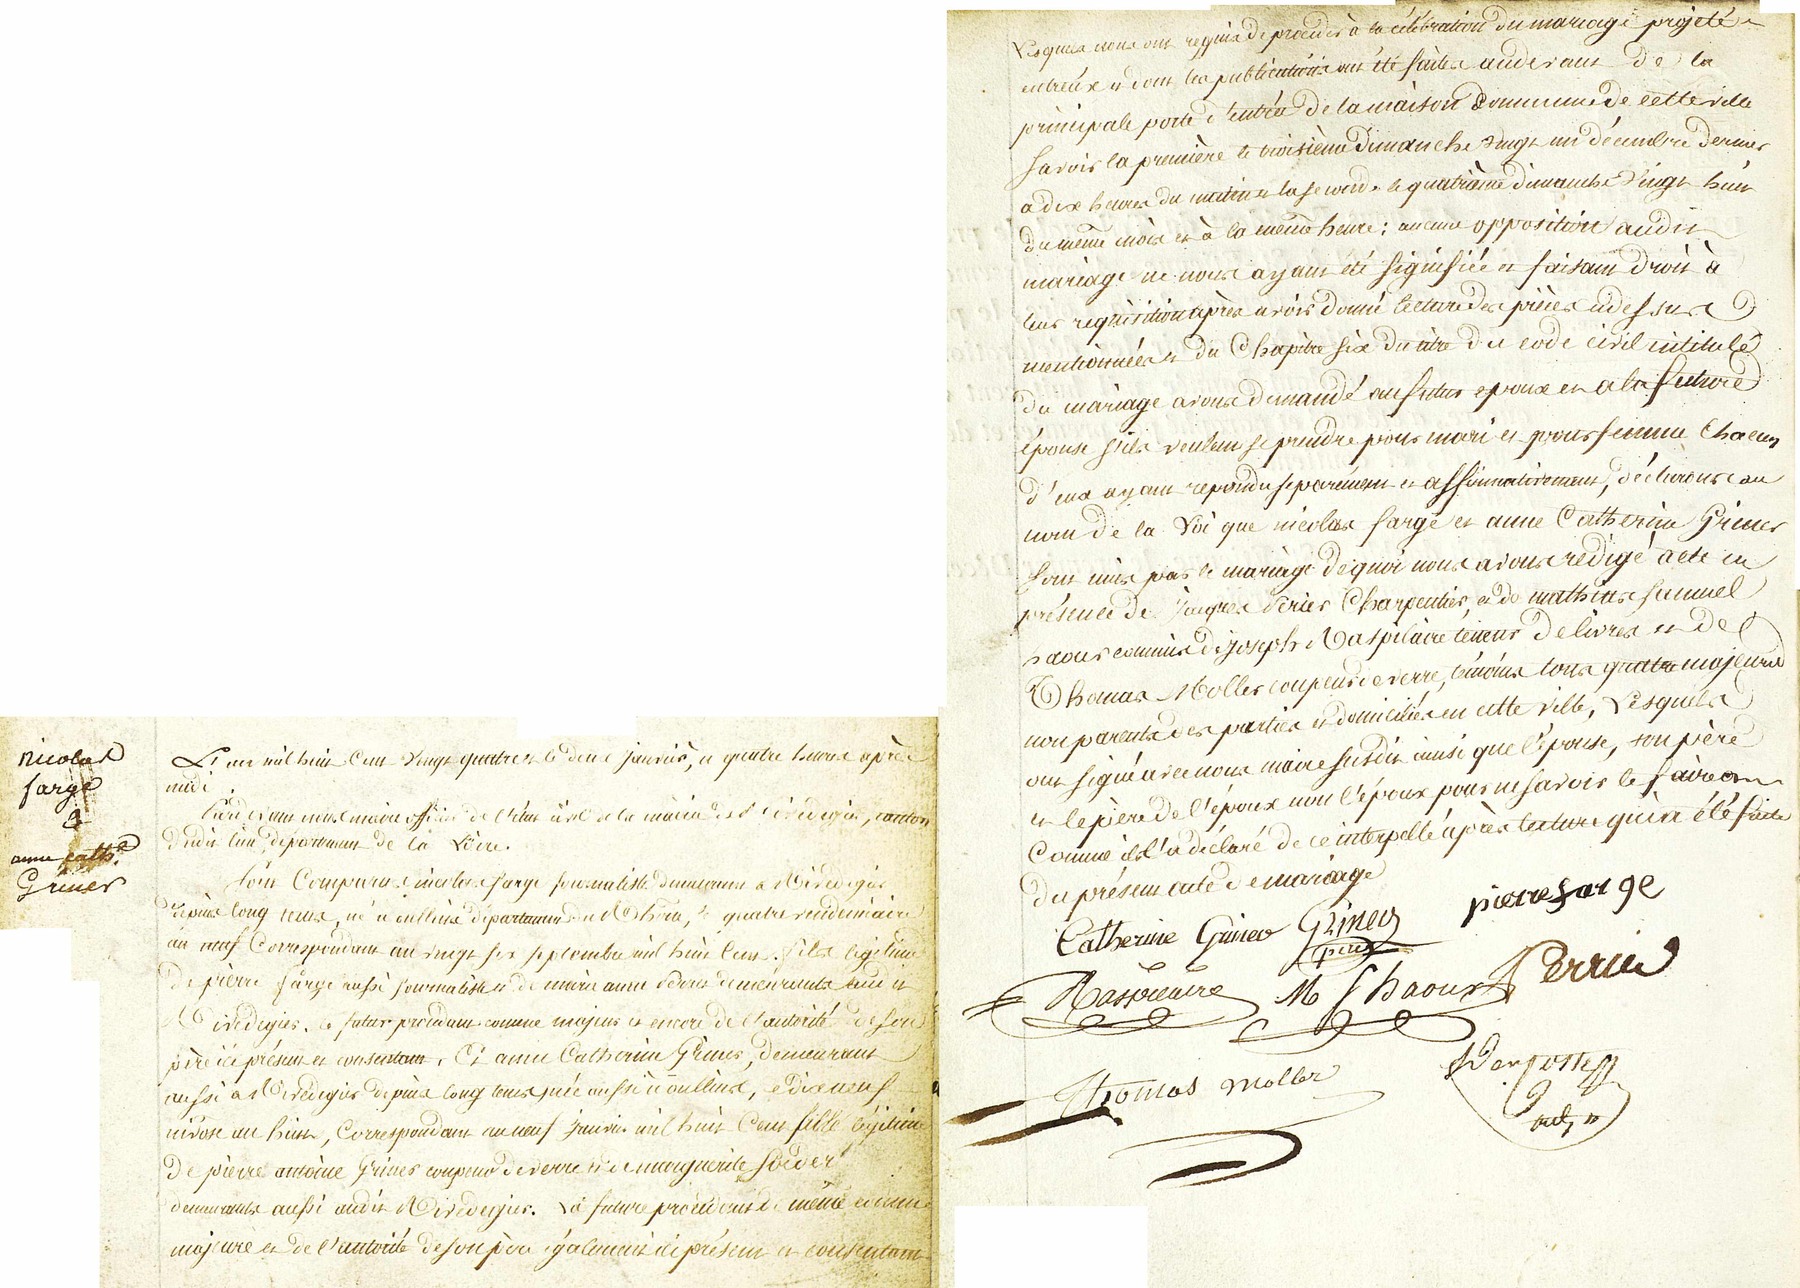 nicolas
fargé
&
anne cath.e
Griner
L'an mil huit cent vingt quatre et le deux janvier, à quatre heures après
midi
Pardevant nous maire officier de l'état civil de la mairie de Rivedegier, canton
dudit lieu, département de la Loire.
Sont comparus nicolas fargé journaliste demeurant à Rivedegier
depuis long tems, né à oullins département du Rhône, le quatre vendemiaire
an neuf correspondant au vingt six septembre mil huit cent. fils légitime
de pierre fargé aussi journaliste et de marie anne demeurants audit
Rivedegier. le futur procédant comme majeur et encore de l'autorité de son
père ici présent et consentant. Et anne Catherine Griner, demeurant
aussi à Rivedegier depuis long tems, née aussi à oullins, le dix neuf
nivose an huit, correspondant au neuf janvier mil huit cent fille légitime
de pierre antoine Griner coupeur de verre et de marguerite
demeurants aussi audit Rivedegier. La future procédant de même comme
majeure et de l'autorité de son père également ici présent et consentant
Lesquels nous ont requis de procéder à la célébration du mariage projeté
entr'eux et dont les publications ont été faites audevant de la
principale porte d'entrée de la maison commune de cette ville
savoir la première le troisième dimanche vingt un décembre dernier
à dix heures du matin et la seconde le quatrième dimanche vingt huit
du même mois et à la même heure; aucune opposition audit
mariage ne nous ayant été signifiée et faisant droit à
leur requisition après avoir donné lecture des pièces cidessus
mentionnées et du Chapitre six du titre du code civil intitulé
du mariage avons demandé au futur epoux et a la future
épouse s'ils veulent se prendre pour mari et pour femme chacun
d'eux ayant repondu séparement et affirmativement, déclarons au
nom de la Loi que nicolas fargé et anne Catherine Griner
sont unis par le mariage de quoi nous avons redigé acte en
présence de jacques Perier Charpentier, & de mathias samuel
haour commis de joseph Raspilaire teneur de livres et de
Thomas Moller coupeur de verre, témoins tous quatre majeurs
non parents des parties et domiciliés en cette ville, Lesquels
ont signé avec nous maire susdit ainsi que l'épouse, son père
et le père de l'époux non l'époux pour ne savoir le faire
comme il l'a déclaré de ce interpellé après lecture qui a été faite
du présent acte de mariage
Catherine Griner Griner pierre fargé
père
Raspileaire M S haour Perrier
Thomas moller
adj.t